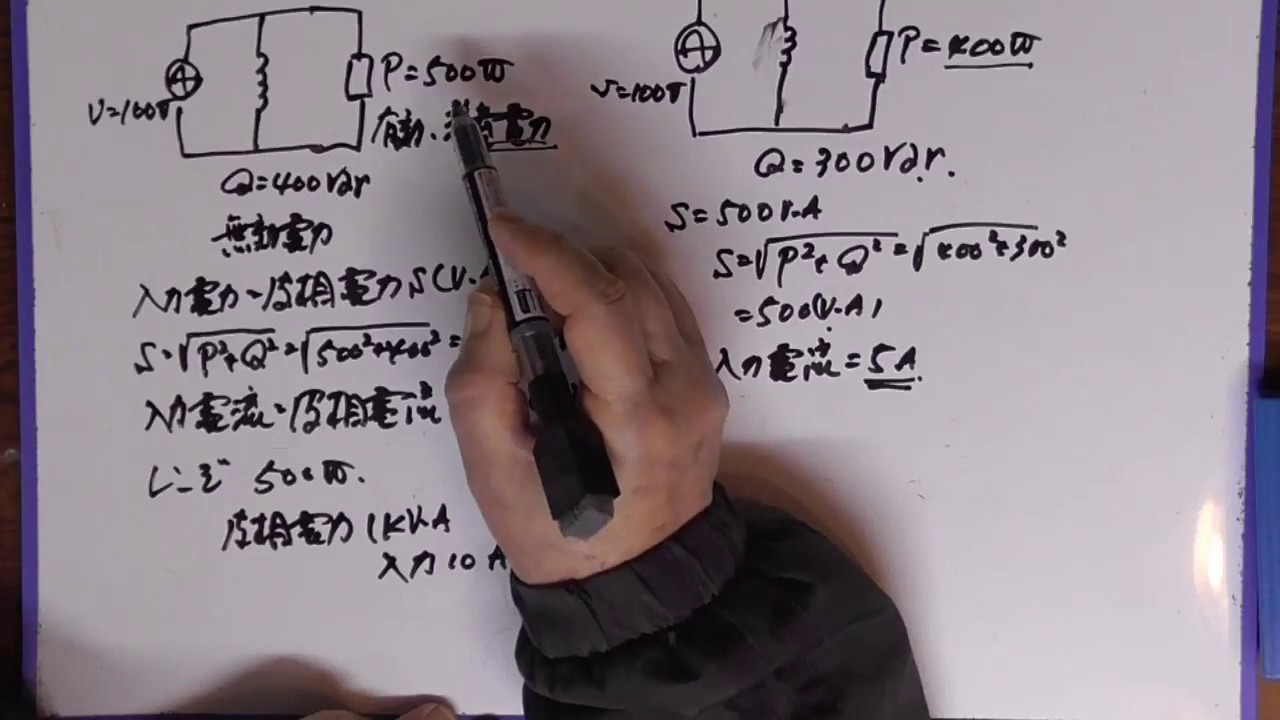 V=100V
P=500W
有効、消費電力
Q=400var
無効電力
入力電力=皮相電力 S(V・
S=√P²+Q²=√500²+400²=
入力電流=皮相電流
レンジ 500W.
皮相電力 1KV・A
入力 10A
V=100V
P=400W
Q=300var.
S=500V・A
S=√P²+Q²=√400²+300²
=500(V・A)
入力電流=5A